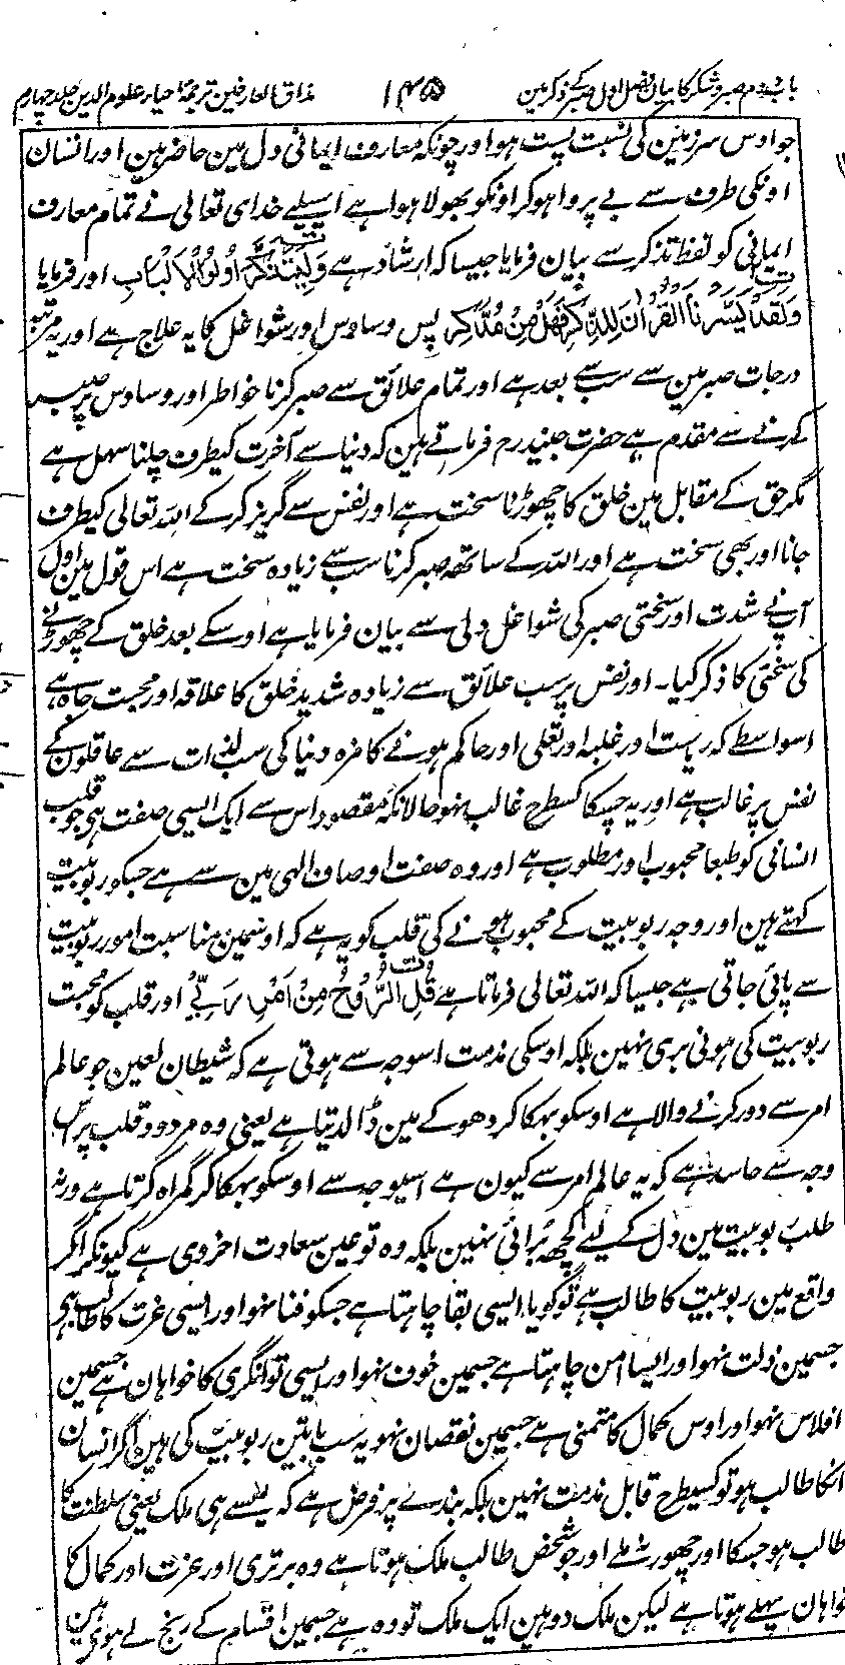 باب دوم صبر و شکر کا بیان فصل اول صبر کے ذکر مین ۱۴۵ مذاق العارفین ترجمۂ احیاء علوم الدین جلد چہارم
جو اوس سرزمین کی نسبت پست ہو اور چونکہ معارف ایمانی دل مین حاضر ہین اور انسان
اونکی طرف سے بے پروا ہوکر اونکو بھولا ہوا ہے اسیلیے خدای تعالی نے تمام معارف
ایمانی کو لفظ تذکر سے بیان فرمایا جیسا کہ ارشاد ہے وَلِیَتَذَکَّرَ اُولُو الْاَلْبَابِ اور فرمایا
وَلَقَدْ یَسَّرْنَا الْقُرْاٰنَ لِلذِّکْرِ فَهَلْ مِنْ مُّدَّکِرٍ پس وساوس اور شواغل کا یہ علاج ہے اور یہ مرتبہ
درجات صبر مین سے سب سے بعد ہے اور تمام علائق سے صبر کرنا خواطر اور وساوس پر صبر
کرنے سے مقدم ہے حضرت جنید رح فرماتے ہین کہ دنیا سے آخرت کیطرف چلنا سہل ہے
مگر حق کے مقابل مین خلق کا چھوڑنا سخت ہے اور نفس سے گریز کرکے اللہ تعالی کیطرف
جانا اور بھی سخت ہے اور اللہ کے ساتھ صبر کرنا سب سے زیادہ سخت ہے اس قول مین اول
آپنے شدت اور سختی صبر کی شواغل دلی سے بیان فرمایا ہے اوسکے بعد خلق کے چھوڑنے
کی سختی کا ذکر کیا۔ اور نفس پر سب علائق سے زیادہ شدید خلق کا علاقہ اور محبت جاہ ہے
اسواسطے کہ ریاست اور غلبہ اور تعلی اور حاکم ہونے کا مزہ دنیا کی سب لذات سے عاقلون کے
نفس پر غالب ہے اور یہ چسکا کسطرح غالب نہو حالانکہ مقصود اس سے ایک ایسی صفت ہی جو قلب
انسانی کو طبعا محبوب اور مطلوب ہے اور وہ صفت اوصاف الہی مین سے ہے جسکو ربوبیت
کہتے ہین اور وجہ ربوبیت کے محبوب ہونے کی قلب کو یہ ہے کہ اوسمین مناسبت امور ربوبیت
سے پائی جاتی ہے جیسا کہ اللہ تعالی فرماتا ہے قُلِ الرُّوْحُ مِنْ اَمْرِ رَبِّیْ اور قلب کو محبت
ربوبیت کی ہونی بری نہین بلکہ اوسکی مذمت اسوجہ سے ہوتی ہے کہ شیطان لعین جو عالم
امر سے دور کرنے والا ہے اوسکو بہکا کر دھوکے مین ڈالدیتا ہے یعنی وہ مردود قلب پر اس
وجہ سے حاسد ہے کہ یہ عالم امر سے کیون ہے اسیوجہ سے اوسکو بہکا کر گمراہ کرتا ہے ورنہ
طلب ربوبیت مین دل کے لیے کچھ بُرائی نہین بلکہ وہ تو عین سعادت اخروی ہے کیونکہ اگر
واقع مین ربوبیت کا طالب ہے تو گویا ایسی بقا چاہتا ہے جسکو فنا نہو اور ایسی عزت کا طالب ہی
جسمین ذلت نہو اور ایسا امن چاہتا ہے جسمین خوف نہو اور ایسی توانگری کا خواہان ہے جسمین
افلاس نہو اور اوس کمال کا متمنی ہے جسمین نقصان نہو یہ سب باتین ربوبیت کی ہین اگر انسان
انکا طالب ہو تو کسیطرح قابل مذمت نہین بلکہ بندے پر فرض ہے کہ ایسے ہی ملک یعنی سلطنت کا
طالب ہو جسکا اور چھور نہ ملے اور جو شخص طالب ملک ہوتا ہے وہ برتری اور عزت اور کمال کا
خواہان پہلے ہوتا ہے لیکن ملک دو ہین ایک ملک تو وہ ہے جسمین اقسام کے رنج لے ہوئے ہین